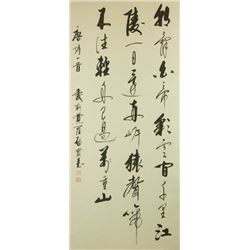 朝辞白帝彩云间千里江
陵一日還两岸猿聲啼
不住輕舟已過萬重山
唐诗一首